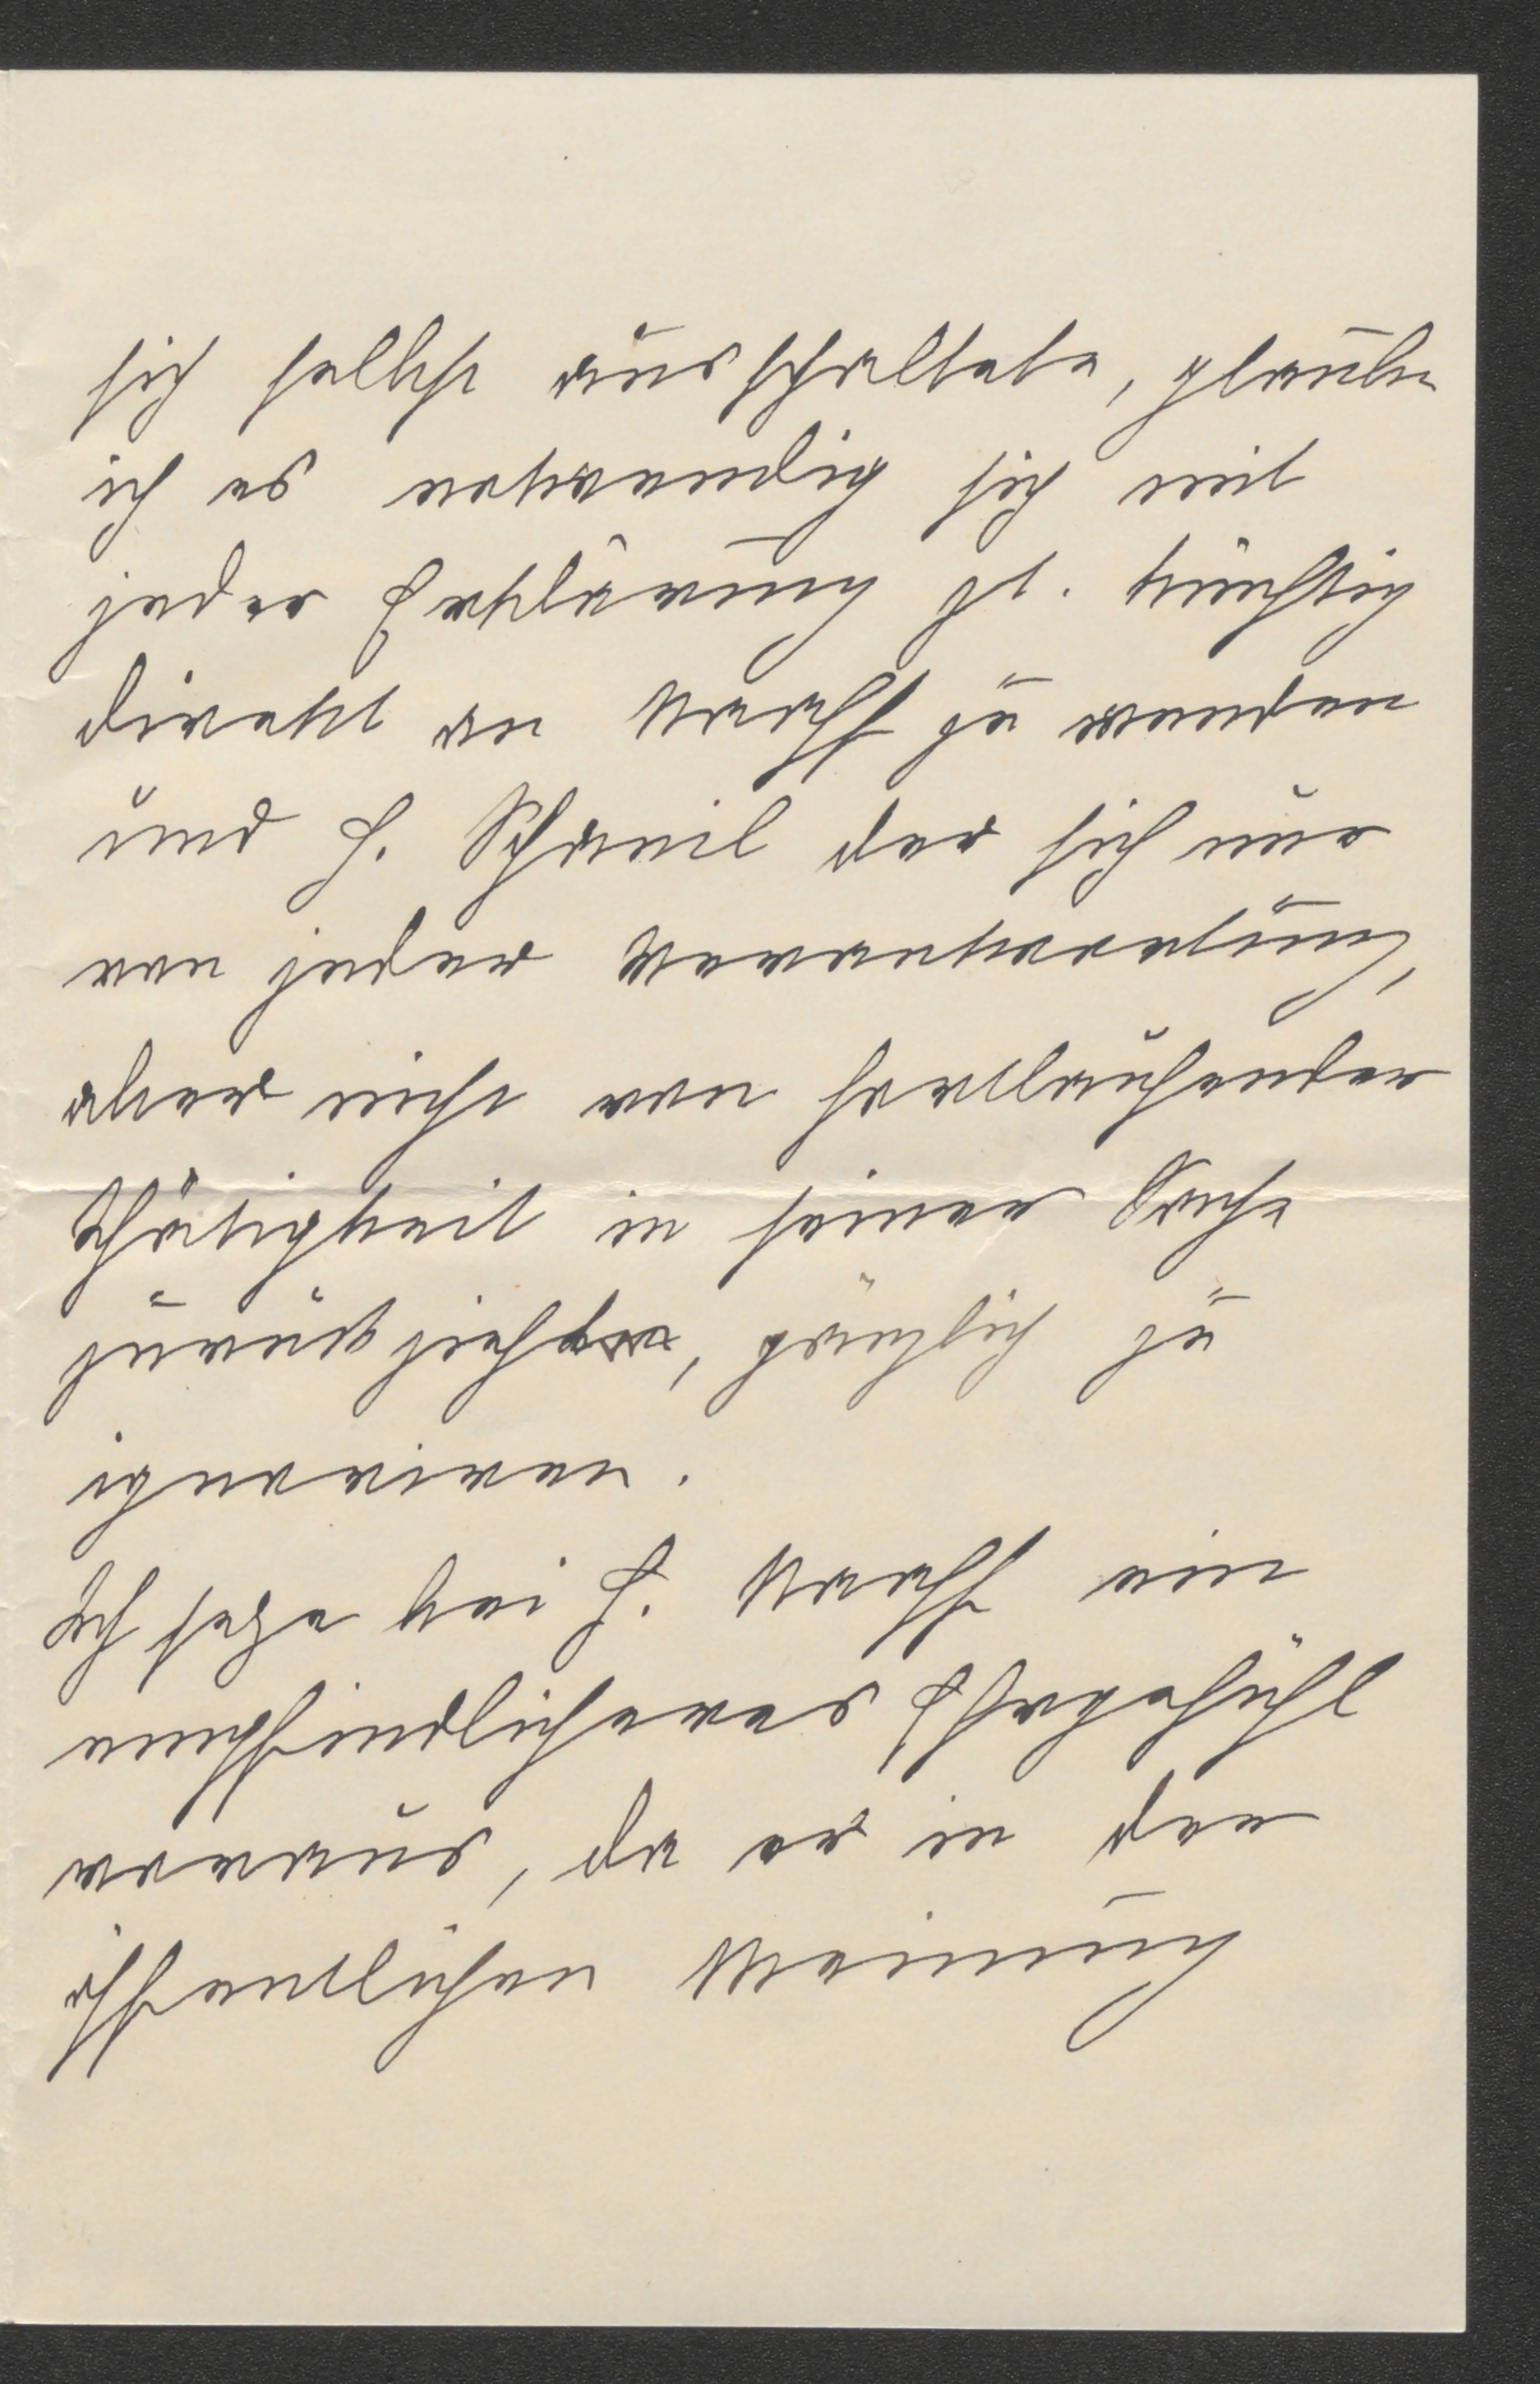 sich selbst ausschaltete, glaube
ich es notwendig sich mit
jeder Erklärung gt. künftig
direkt an Markt zu wenden
und H. Schreil der sich nur
von jeder Verantwortung,
aber nicht von fortlaufender
Thätigkeit in seiner Sache
zurückzieht, gänzlich zu
ignoriren.
Ich setze bei H. ein
empfindlicheres Ehrgefühl
voraus, da er in der
öffentlichen Meinung